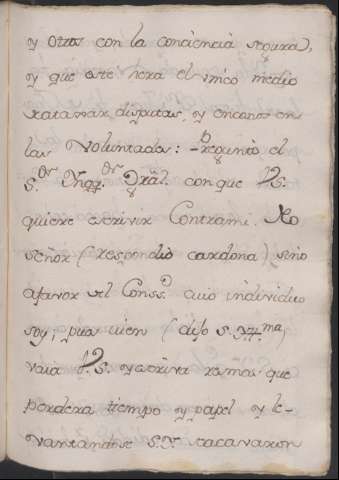 y otros con la conciencia segura),
y que este sera el unico medio
atajar disputas, y encono en
las Voluntades: - Preguntò el
S.or Ynqq.or Gràl. con que V.S.
quiere escrivir Contra mi. No
señor (respondio cardona) sino
afavor del Conss.o cuio individuo
soy; pues vien (dijo S. Y.ma)
vaia V.S. y escriva ramas que
perdera tiempo y papel y le-
vantandose S.Y. se acavaron